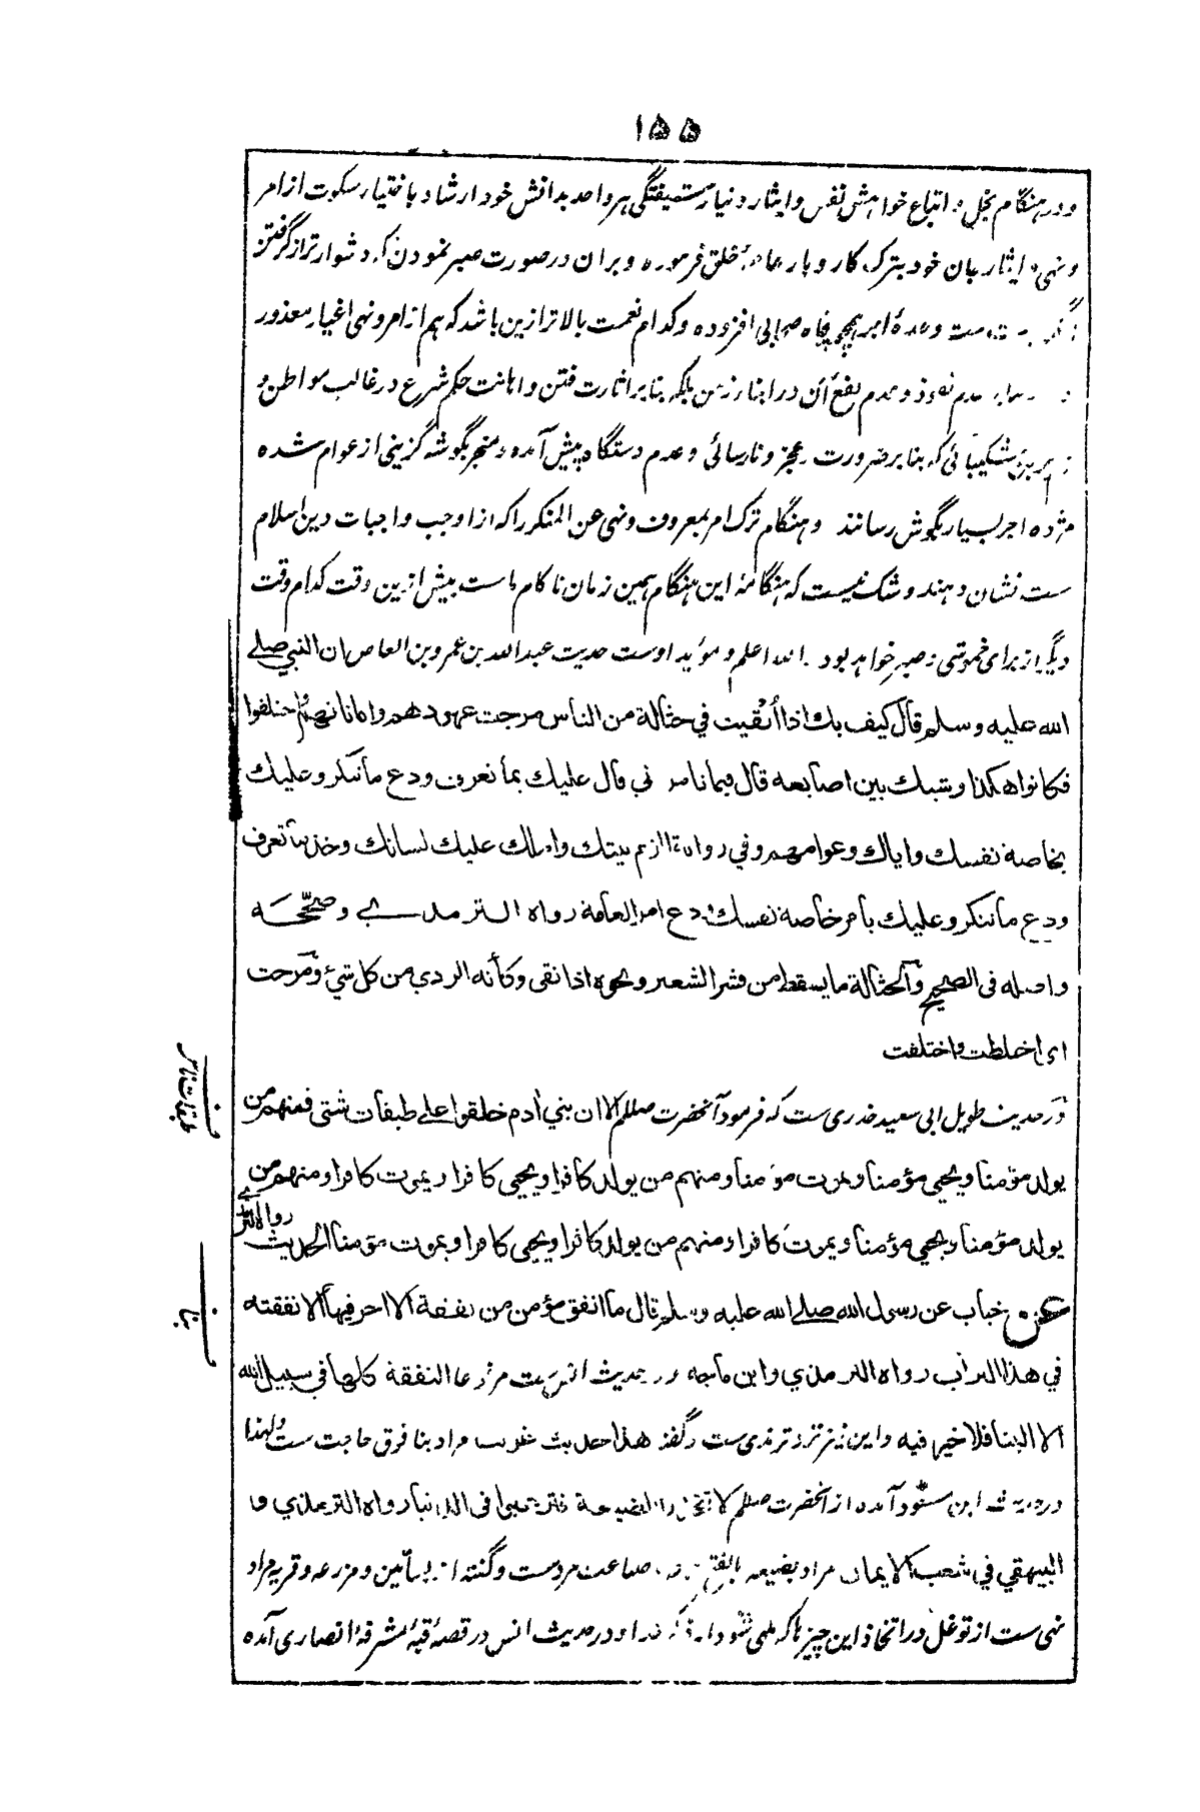 ۱۵۵
و در هنگام بخل و اتباع خواهش نفس و ایثار دنیا و شیفتگی هر واحد بدانش خود ارشاد باختیار سکوت از امر
و نهی و ایثار بجان خود بترک کار و بار عامهٔ خلق فرموده و بران در صورت صبر نمودن که دشوارتر از گرفتن
ست وعدهٔ اجر پنجاه صحابی افزوده و کدام نعمت بالاتر ازین باشد که هم از امر و نهی اغیار معذور
عدم نفوذ و عدم نفع آن در ابناء زمن بلکه بنابر اثارت فتن و اهانت حکم شرع در غالب مواطن و
هم برین شکیبائی که بنابر ضرورت عجز و نارسائی و عدم دستگاه پیش آمده و منجر بگوشه گزینی از عوام شده
مژده اجر بسیار بگوش رسانند و هنگام ترک امر بمعروف و نهی عن المنکر را که از اوجب واجبات دین اسلام
ست نشان دهند و شک نیست که هنگامهٔ این هنگام همین زمان ناکام ماست بیش ازین وقت کدام وقت
دیگر از برای خموشی و صبر خواهد بود و الله اعلم و مؤید اوست حدیث عبدالله بن عمرو بن العاص ان النبی صلے
الله علیه وسلم قال کیف بك اذا أُبقیت في حثالة من الناس مرجت عهودهم واماناتهم واختلفوا
فکانوا هکذا وشبك بین اصابعه قال فبما تامرني قال علیك بما تعرف ودع ما تنکر وعلیك
بخاصة نفسك وایاك وعوامهم وفي روایة الزم بیتك واملك علیك لسانك وخذ ما تعرف
ودع ما تنکر وعلیك بامر خاصة نفسك ودع امر العامة رواه الترمذي وصحّحه
واصله فی الصحیح والحثالة ما یسقط من قشر الشعیر ونحوه اذا نقی وکأنه الردي من کل شيء ومرجت
ای اختلطت واختلفت
و در حدیث طویل ابی سعید خدری ست که فرمود آنحضرت صللم الا ان بني اٰدم خلقوا علی طبقات شتی فمنهم من
یولد مؤمنا ویحیی مؤمنا ویموت مؤمنا ومنهم من یولد کافرا ویحیی کافرا ویموت کافرا ومنهم من
یولد مؤمنا ویحیی مؤمنا ویموت کافرا ومنهم من یولد کافرا ویحیی کافرا ویموت مؤمنا الحدیث
رواه الترمذی
عن خباب عن رسول الله صلے الله علیه وسلم قال ما انفق مؤمن من نفقة الا اجر فیها الا نفقته
في هذا التراب رواه الترمذي وابن ماجه و در حدیث انس ست مرفوعا النفقة کلها في سبیل الله
الا البناء فلا خیر فیه و این نیز نزد ترمذی ست و گفته هذا حدیث غریب مراد بنا فوق حاجت ست و لهذا
در حدیث ابن مسعود آمده از آنحضرت صللم لا تتخذوا الضیعة فترغبوا فی الدنیا رواه الترمذي و
البیهقي في شعب الایمان مراد بضیعه بالفتح صناعت مرد ست و گفته اند بساتین و مزرعه و قریه مراد
نهی ست از توغل در اتخاذ این چیزها که ملهی شود از ذکر خدا و در حدیث انس در قصهٔ قبهٔ مشرفهٔ انصاری آمده
ف طبقات ناس
ف بنا